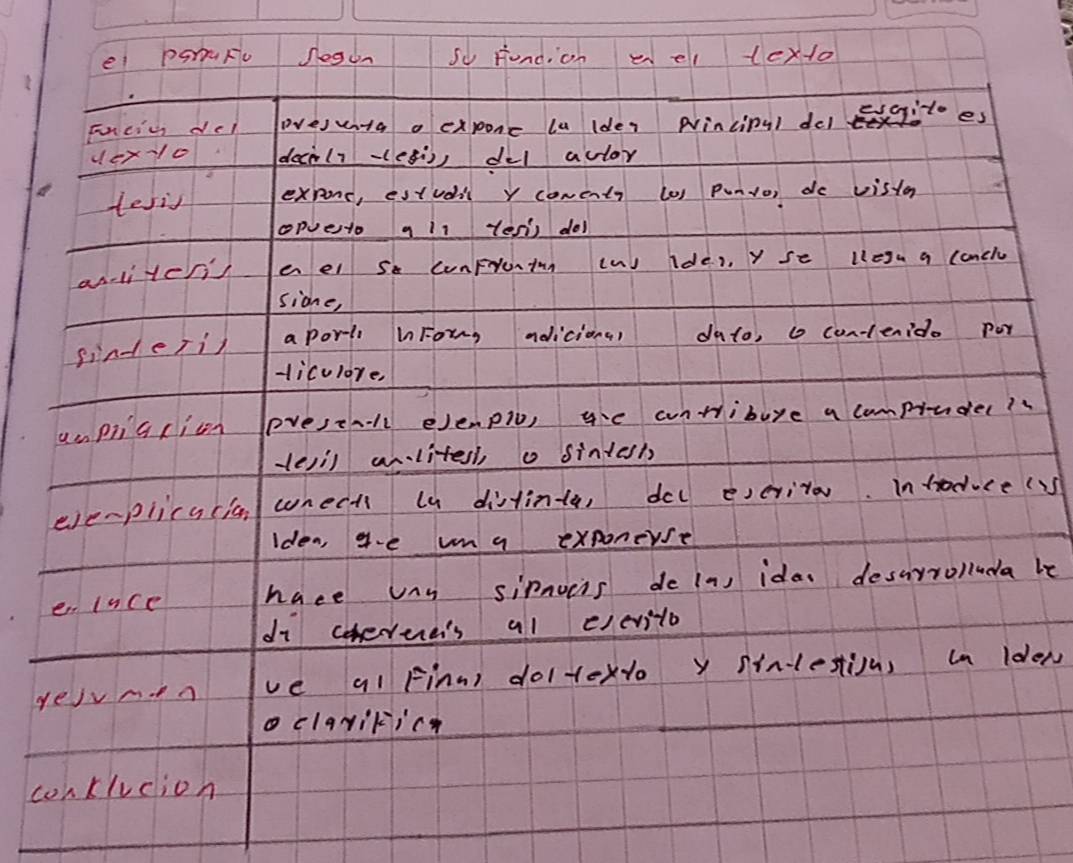 el parrafo segun su Funcion en el texto
Funcion del presenta o expone la idea Principal del texto escrito es
texto decir la tesis, del autor
tesis expone, estudia y comenta los Puntos, de vista
opuesto a la tesis del
antitesis en el se confrontan las ideas, y se llega a conclu
sione,
sintesis aporta informa adicional datos, o contenido par
ticulare,
ampliacion presenta ejemplo, que contribuye a comprender la
tesis antitesis o sintesis
ejemplicacion conecta la distinta, del escrito. introduce las
idea, que van a exponerse
enlace hace una sipnocis de las idas desarrollada le
di coherencia al escrito
resumen ve al Final del texto y sintestisa, la idea
o clarifica
conklucion